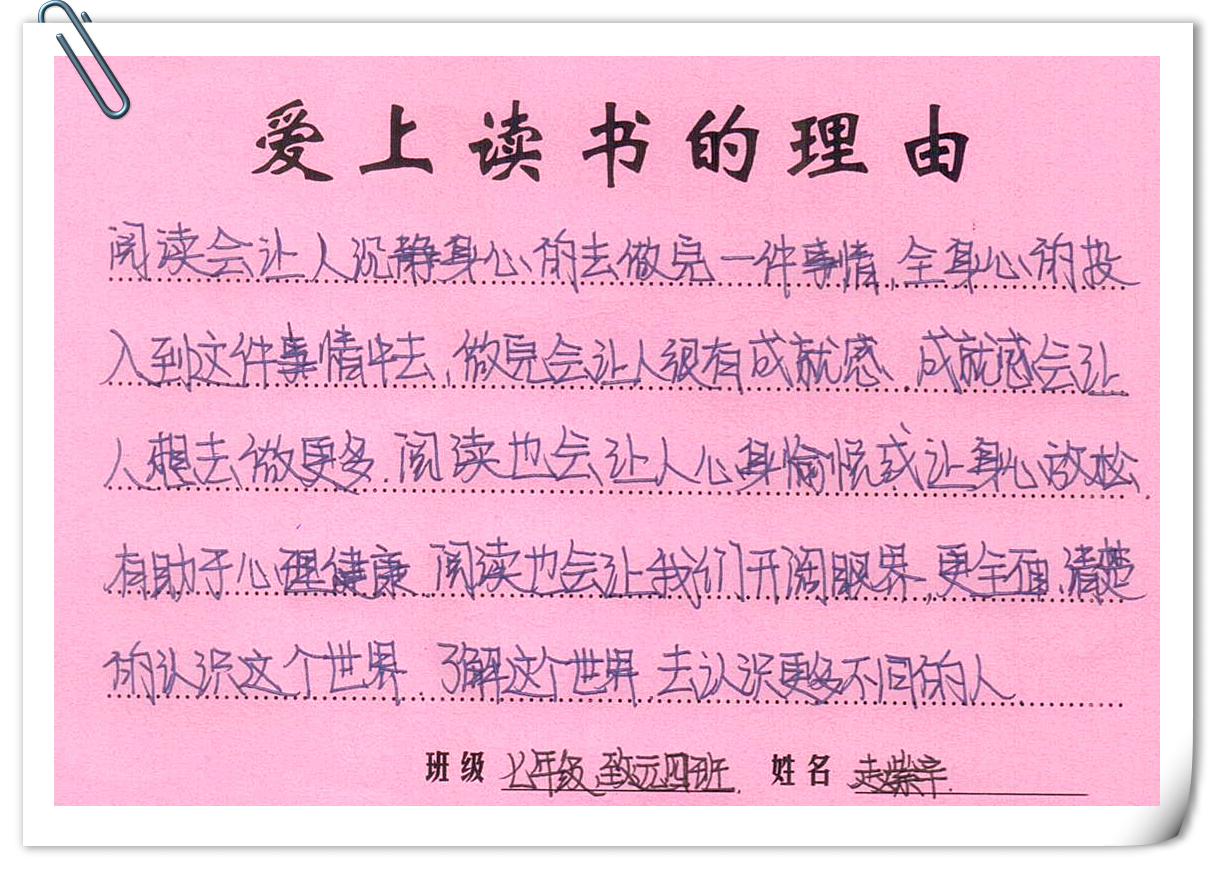 爱上读书的理由
阅读会让人沉静身心的去做完一件事情,全身心的投
入到这件事情中去,做完会让人很有成就感.成就感会让
人想去做更多.阅读也会让人心身愉悦或让身心放松.
有助于心理健康.阅读也会让我们开阔眼界,更全面、清楚
的认识这个世界.了解这个世界,去认识更多不同的人.
班级 七年级 致元四班. 姓名